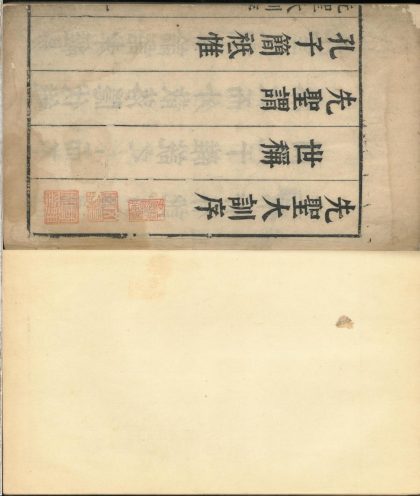 先聖大訓序
世稱
先聖謂
孔子簡祗惟